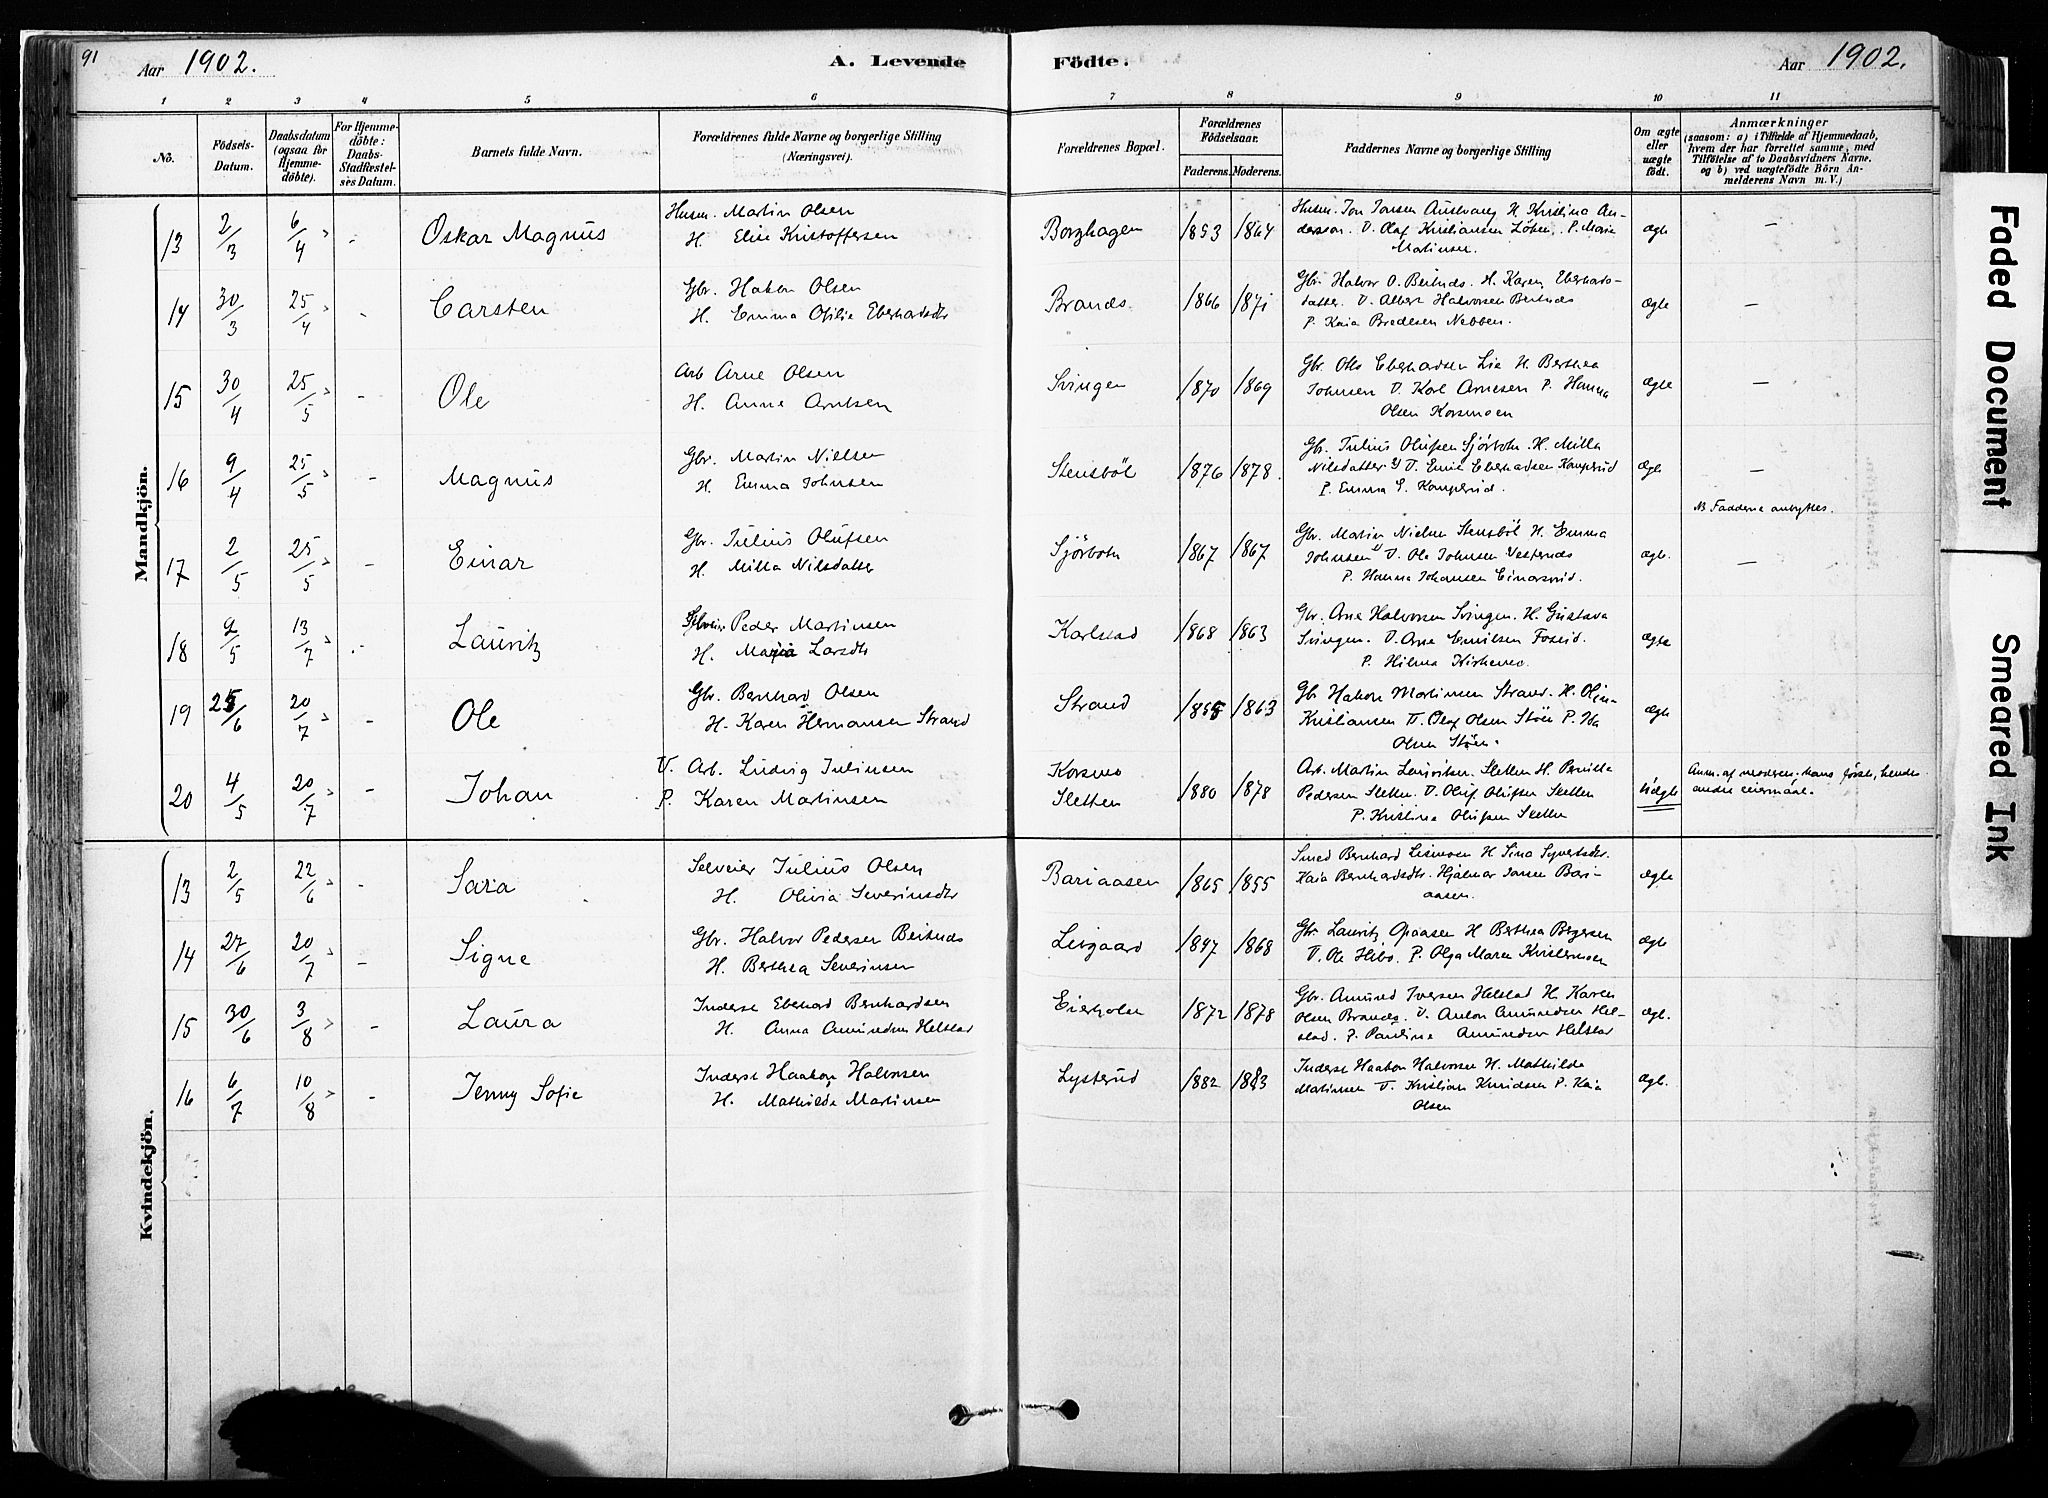 91
Aar 1902.
A. Levende Födte.
Aar 1902.
1 2 3 4 5 6 7 8 9 10 11
No.
Födsels-Datum.
Daabsdatum (ogsaa for Hjemme-döbte).
For Hjemme-döbte: Daabs-Stadfæstel-ses Datum.
Barnets fulde Navn.
Forældrenes fulde Navne og borgerlige Stilling (Næringsvei).
Forældrenes Bopæl.
Forældrenes Födselsaar.
Faderens. Moderens.
Faddernes Navne og borgerlige Stilling
Om ægte eller uægte födt.
Anmærkninger
(saasom: a) i Tilfælde af Hjemmedaab,
hvem der har forrettet samme, med
Tilföielse af to Daabsvidners Navne.
og b) ved uægtefödte Börn An-
melderens Navn m. V.)
Mandkjön.
13 2/3 6/4 - Oskar Magnus
Husm. Martin Olsen
H. Elise Kristoffersen
Borzhagen 1853 1864
Husm. Jon Jonsen H. Kristina An-
derson. U. Olaf Kristiansen P. Marie
Martinsen.
ægte -
14 30/3 25/4 - Carsten
Gbr. Hakon Olsen
H. Emma Otilie Eberhardsdtr
Brands. 1866 1871
Gbr. Halvor O. Beitnds. H. Karen Eberhards-
datter. U. Albert Halvorsen Beitnds
P. Kaia Bredesen Nebben.
ægte -
15 30/4 25/5 - Ole
Arb Arne Olsen
H. Anne Arntsen
Svingen 1870 1869
Gbr. Ole Eberhardsen Lie H. Berthea
Johnsen U. Karl Arnesen P. Hanna
Olsen Korsmoen
ægte -
16 9/4 25/5 - Magnus
Gbr. Martin Nielsen
H. Emma Johnsen
Stensböl 1876 1878.
Gbr. Julius Olufsen Sjörboln. H. Milla
Nilsdatter U. Emil Eberhardsen Kamperud
P. Emma E. Kamperud.
ægte -
NB Fadderne ombyttes.
17 2/5 25/5 - Einar
Gbr. Julius Olufsen
H. Milla Nilsdatter
Sjörboln 1867 1867
Gbr. Martin Nielsen Stensböl H. Emma
Johnsen U. Ole Johnsen Vestends
P. Hanna Johansen Einarsrud.
ægte. -
18 9/5 13/7 - Lauritz
Selveier Peder Martinsen
H. Maria Larsdtr
Karlstad 1868 1863
Gbr. Arne Halvorsen Svingen. H. Gustava
Svingen. U. Arne Emilsen Foseid.
P. Hilma Kirkemo.
ægte
19 25/6 20/7 - Ole
Gbr. Bernhard Olsen
H. Karen Hermansen Strand
Strand 1855 1863
Gbr Hakon Martinsen Strand. H. Olin-
Kristiansen U. Olaf Olsen Stöen P. Ida
Olsen Stöen.
ægte
20 4/5 20/7 - Johan
U. Arb. Ludvig Julinsen
P. Karen Martinsen
Korsmo
Sletten
1880 1878
Arb. Martin Lauritsen. Sletten H. Pernille
Pedersen Sletten. U. Oluf Olufsen Sletten
P. Kristine Olufsen Sletten
Uægte
Anm. af moderen. hans første, hendes
andet leiermaal.
Kvindekjön.
13 2/5 22/6 - Sara
Selveier Julius Olsen
H. Olivia Severinsdtr
Bariaasen 1865 1855
Smed Bernhard Lismoen H. Sina Syvertsdtr.
Kaia Bernhardsdtr. Hjalmar Jansen Bari-
aasen.
ægte
14 27/6 20/7 - Signe
Gbr. Halvor Pedersen Beitnds
H. Berthea Severinsen
Leirgaard 1847 1868
Gbr Lauritz Opaasen H Berthea Birgersen
U. Ole Hibo. P. Olga Maren Kristensen
ægte
15 30/6 3/8 - Laura
Inderst Eberhard Bernhardsen
H. Anna Amundsen Helstad
Eierholm 1872 1878
Gbr. Amund Iversen Helstad H. Karen
Olsen Brands. U. Anton Amundsen Hel-
stad. P. Pauline Amundsen Helstad
ægt.
16 6/7 10/8 - Jenny Sofie
Inderst Haakon Halvorsen
H. Mathilde Martinsen
Lysterud 1882 1883
Inderst Haakon Halvorsen H. Mathilde
Martinsen U. Kristian Knudsen P. Kaia
Olsen
ægt.
Faded Document
Smeared Ink